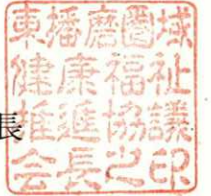 東播磨圏域
健康福祉
推進協議
会長之印
長